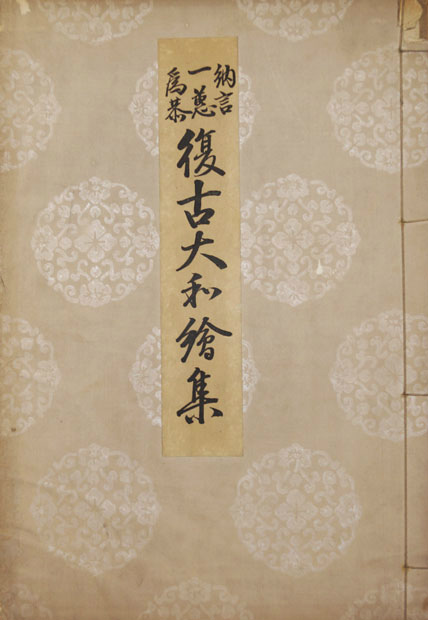 訥言
一蕙
為恭
復古大和繪集